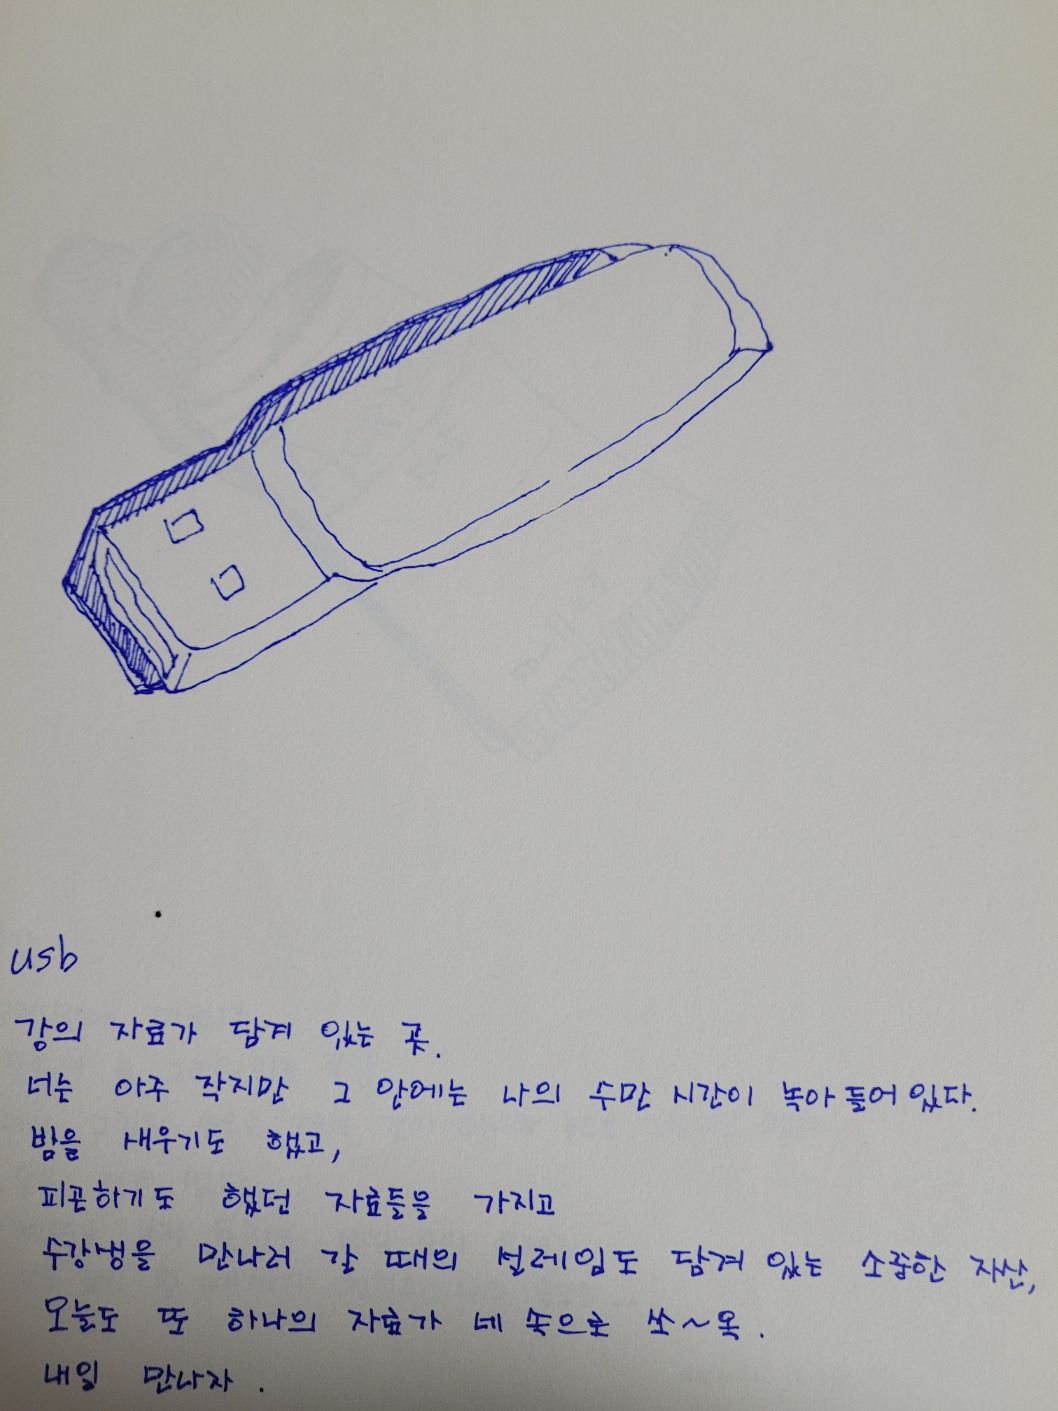 usb
강의 자료가 담겨 있는 곳.
너는 아주 작지만 그 안에는 나의 수만 시간이 녹아 들어 있다.
밤을 새우기도 했고,
피곤하기도 했던 자료들을 가지고
수강생을 만나러 갈 때의 설레임도 담겨 있는 소중한 자산,
오늘도 또 하나의 자료가 네 속으로 쏘~옥.
내일 만나자.